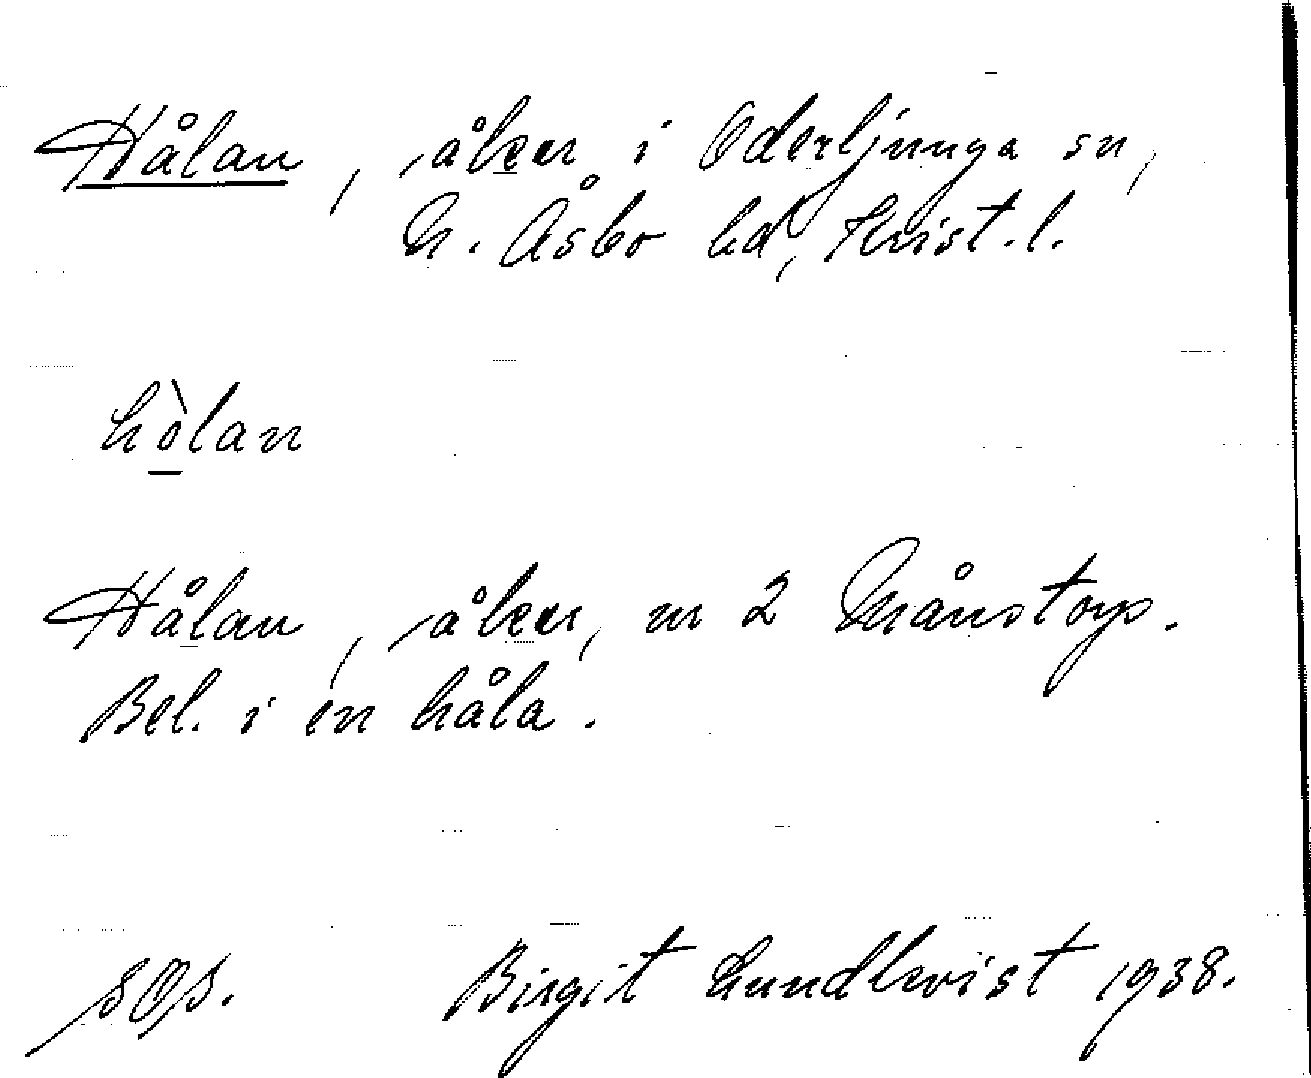 Hålan, åker i Oderljunga sn,
N. Åsbo hd, Krist. l.
hòlan
Hålan, åker, nr 2 Månstorp.
Bel. i en håla.
Birgit Lundkvist 1938.